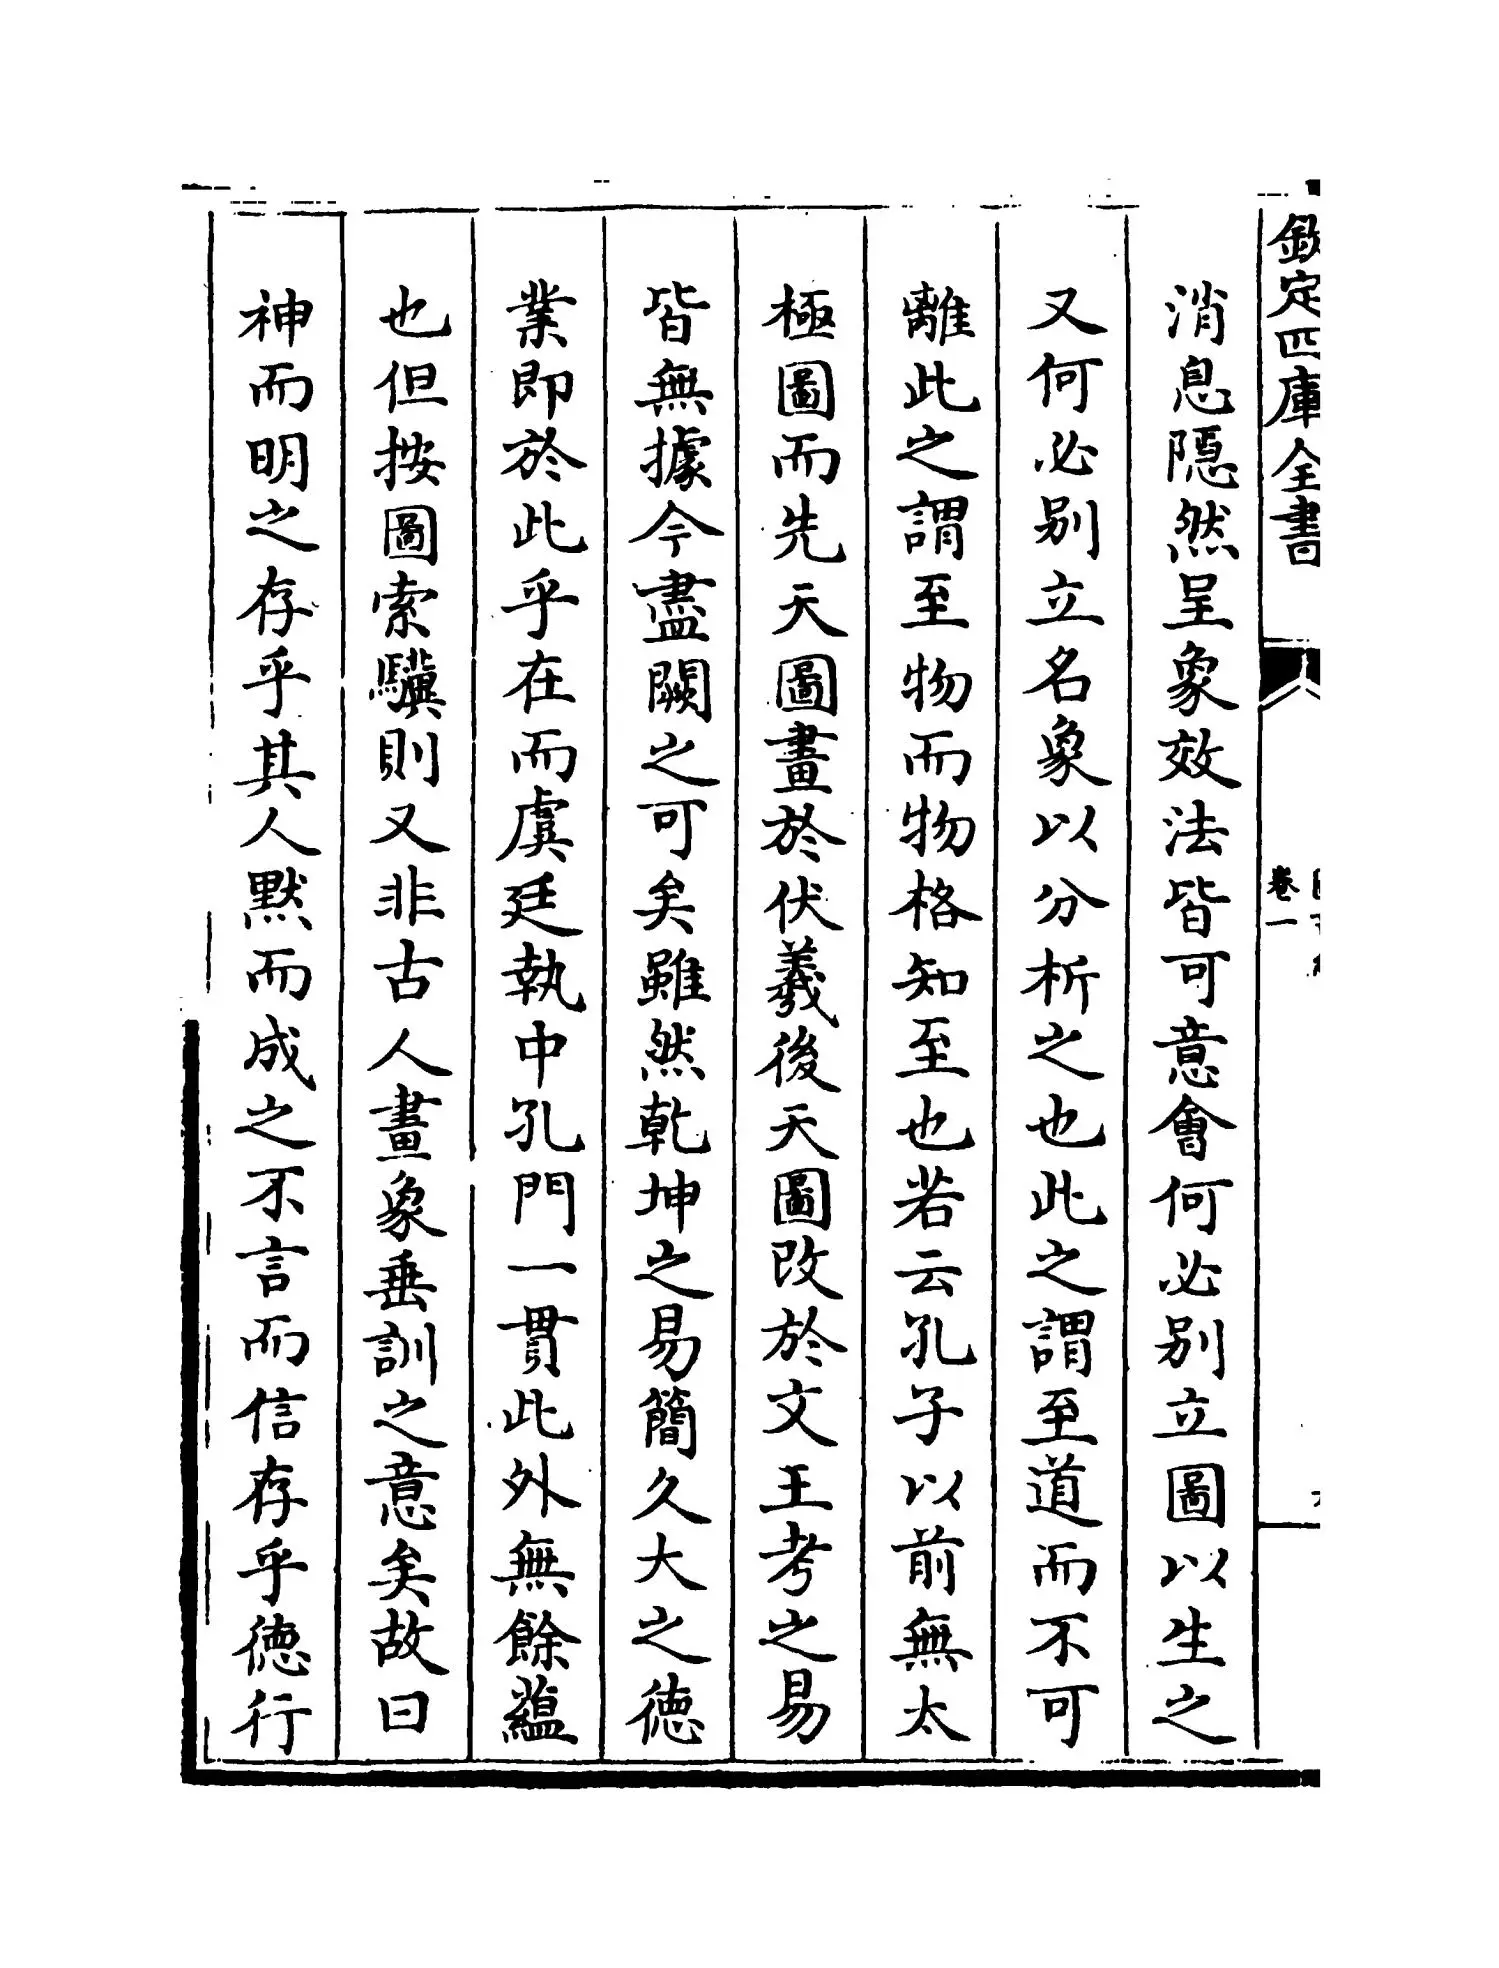 欽定四庫全書
卷一
消息隠然呈象效法皆可意會何必别立圖以生之
又何必别立名象以分析之也此之謂至道而不可
離此之謂至物而物格知至也若云孔子以前無太
極圖而先天圖畫於伏羲後天圖改於文王考之易
皆無據今盡闕之可矣雖然乾坤之易簡久大之徳
業即於此乎在而虞廷執中孔門一貫此外無餘藴
也但按圖索驥則又非古人畫象垂訓之意矣故曰
神而明之存乎其人默而成之不言而信存乎徳行